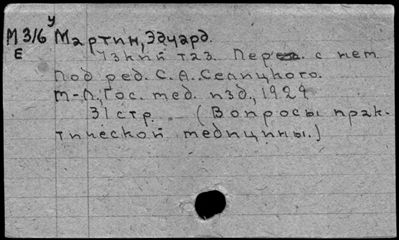 У
М 316 Мартин, Эдуард.
Е
Узкий таз. Перев. с нем.
Под ред. С. А. Селицкого.
М-Л, Гос. мед. изд., 1929
31 стр. (Вопросы прак-
тической медицины.)